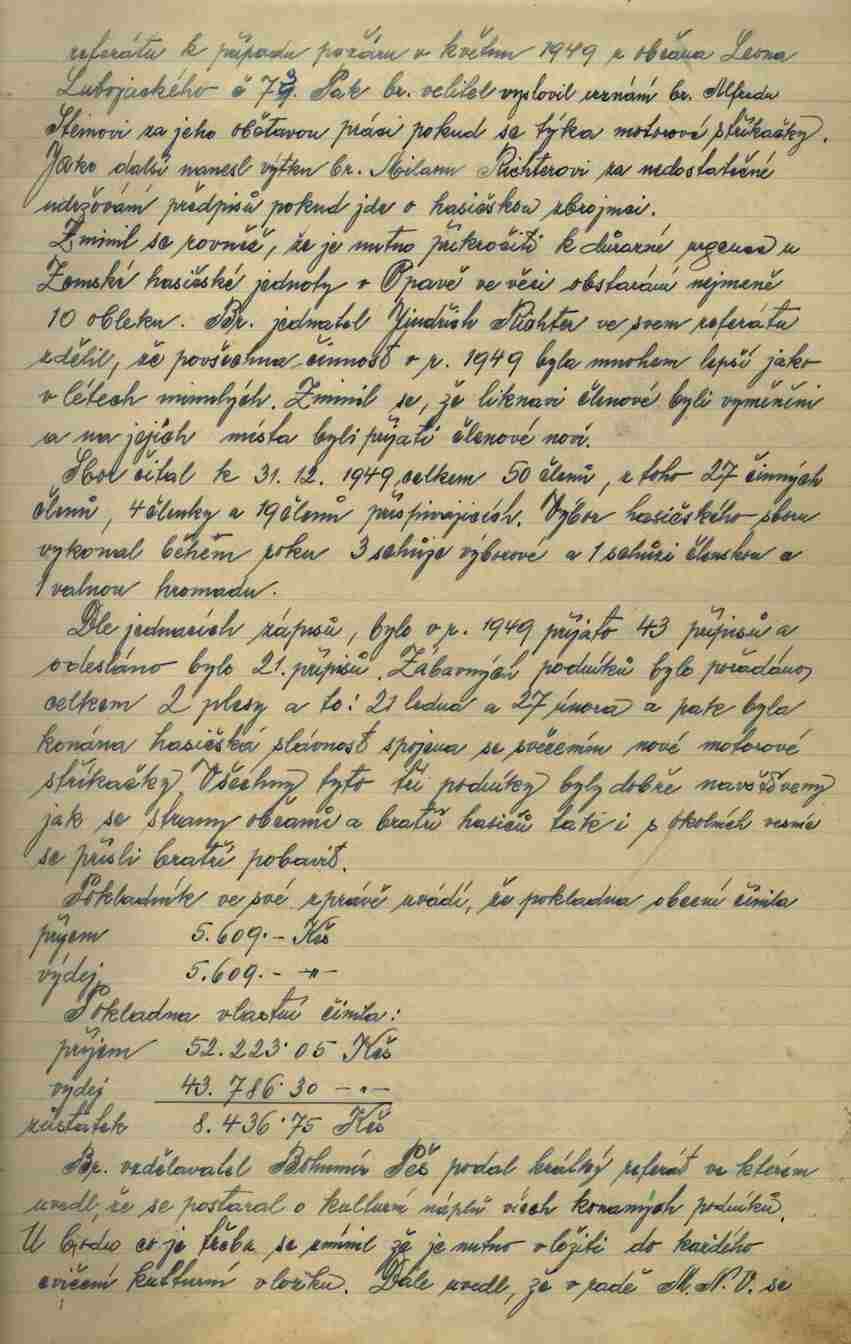 referátu k případu požáru v květnu 1949 u občana Leona
Lubojackého č 79. Pak br. velitel vyslovil uznání br. Alfredu
Steinovi za jeho obětavou práci pokud se týka motorové stříkačky.
Jako další vznesl výtku br. Milanu Richterovi za nedostatečné
udržování předpisů pokud jde o hasičskou zbrojnici.
Zminil se rovněž, že je nutno přikročiti k důrazné urgence u
Zemské hasičské jednoty v Opavě ve věci obstarání nejmeně
10 obleku. Br. jednatel Jindřich Richter ve svem referátu
zdělil, že povšechna činnost v r. 1949 byla mnohem lepší jako
v létech minulých. Zminil se, že liknavi členové byli vyměněni
a na jejich místa byli přijati členové noví.
Sbor čítal k 31. 12. 1949 celkem 50 členů, z toho 27 činných
členů, 4 členky a 19 členů přispivajicich. Výbor hasičského sboru
vykonal během roku 3 schůze výborové a 1 schůzi členskou a
1 valnou hromadu.
Dle jednacích zápisů, bylo v r. 1949 přijato 43 připisů a
odesláno bylo 21. připisů. Zábavných podniků bylo pořádáno
celkem 2 plesy a to: 21 ledna a 27 února a pak byla
konána hasičská slávnost spojena se svěcením nové motorové
stříkačky. Všechny tyto tři podniky byly dobře navštěveny
jak se strany občanů a bratří hasičů tak i z okolních vesnic
se přišli bratří pobavit.
Pokladník ve své zprávě uvádí, že pokladna obecní činila
příjem 5.609.- Kčs
výdej 5.609.- -"-
Pokladna vlastní činila:
příjem 52.223.05 Kčs
vydej 43.786.30 -"-
zůstatek 8.436.75 Kčs
Br. vzdělavatel Bohumír podal krátký referát ve kterém
uvedl, že se postaral o kulturní náplň všech konaných podniků.
U bodu co je třeba se zmínil že je nutno vložiti do každého
cvičení kulturní vložku. Dále uvedl, že v radě M.N.V. se